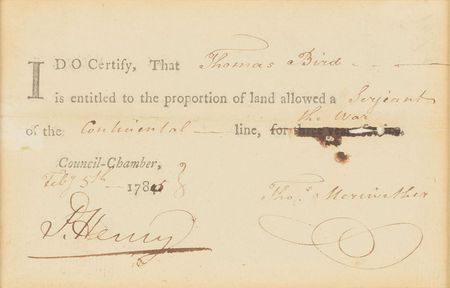 I DO Certify, That Thomas Bird
is entitled to the proportion of land allowed a Serjeant
of the Continental line, for the War
Council-Chamber,
Feby 5th 178
Thos. Meriwether
P. Henry